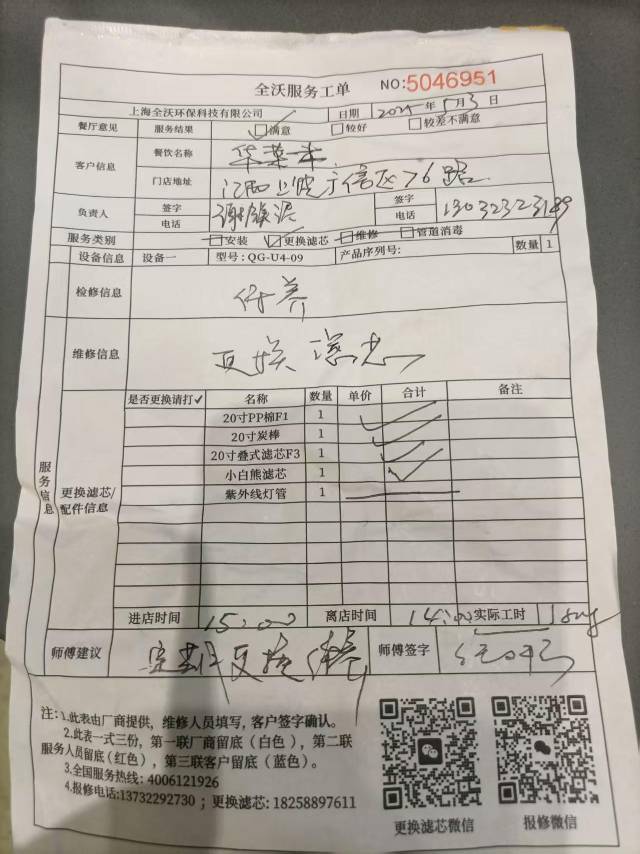 全沃服务工单 NO:5046951
上海全沃环保科技有限公司 日期 2025年5月3日
餐厅意见 服务结果 ☑满意 □较好 □较差不满意
客户信息 餐饮名称 华莱士
门店地址 江西上饶广信区76路
负责人 签字 电话 签字 电话
服务类别 □安装 ☑更换滤芯 □维修 □管道消毒
设备信息 设备一 型号:QG-U4-09 产品序列号: 数量 1
检修信息 保养
维修信息 更换滤芯
服务信息
更换滤芯/配件信息
是否更换请打✓ 名称 数量 单价 合计 备注
20寸PP棉F1 1 ✓
20寸炭棒 1 ✓
20寸叠式滤芯F3 1 ✓
小白熊滤芯 1 ✓
紫外线灯管 1
进店时间 15:00 离店时间 14:00 实际工时
师傅建议 更换 保养 师傅签字
注:1.此表由厂商提供，维修人员填写，客户签字确认。
2.此表一式三份，第一联厂商留底（白色），第二联
服务人员留底(红色），第三联客户留底（蓝色）。
3.全国服务热线: 4006121926
4.报修电话:13732292730 ; 更换滤芯: 18258897611
更换滤芯微信 报修微信